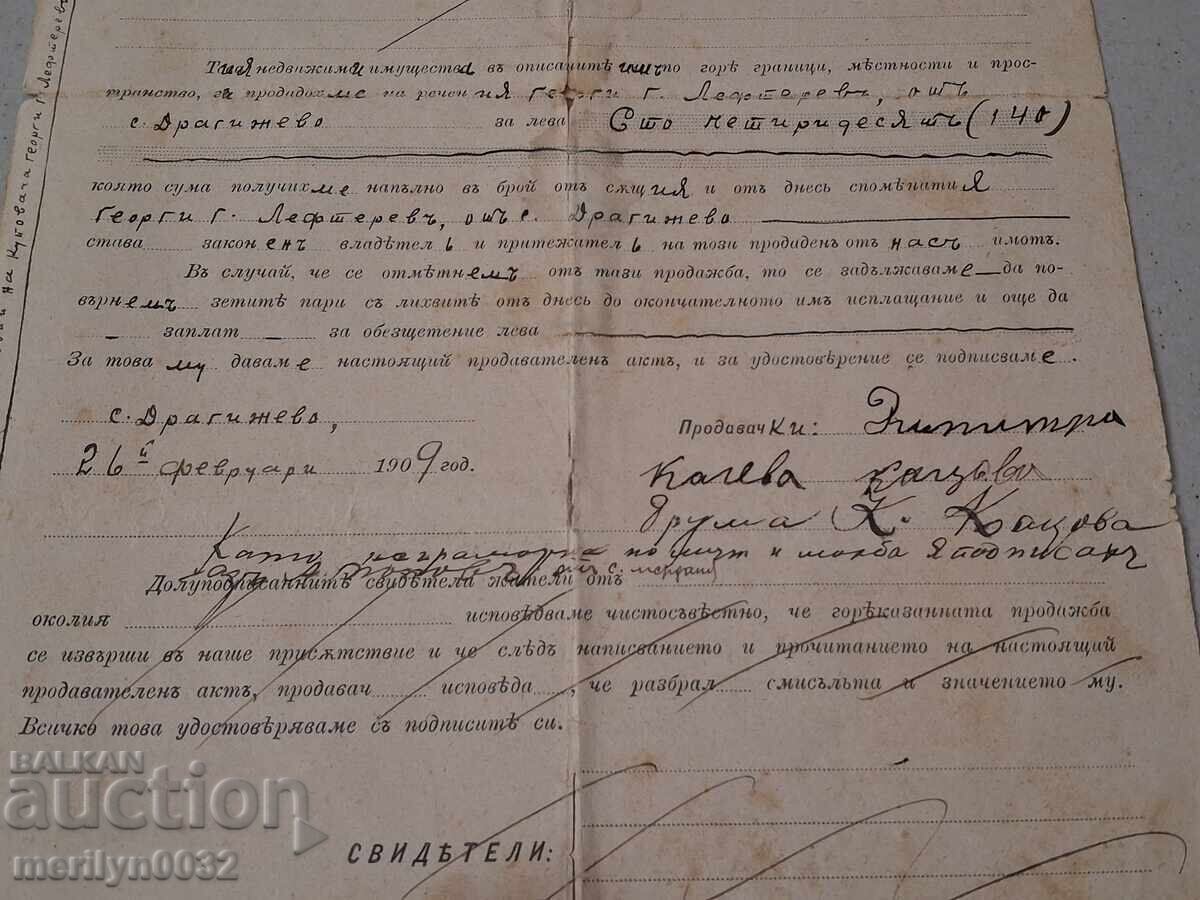 Тия недвижими имущества въ описанитѣ имъ по горѣ граници, мѣстности и прос-
транство, ги продадохме на речения Георги Г. Лефтеревъ, отъ
с. Драгижево за лева Сто четиридесять (140)
която сума получихме напълно въ брой отъ сѫщия и отъ днесь споменатия
Георги Г. Лефтеревъ, отъ с. Драгижево
става законенъ владѣтель и притежатель на този продаденъ отъ насъ имотъ.
Въ случай, че се отмѣтнемъ отъ тази продажба, то се задължаваме да по-
върнемъ зетитѣ пари съ лихвитѣ отъ днесь до окончателното имъ исплащание и още да
заплат за обезщетение лева
За това му даваме настоящий продавателенъ актъ, и за удостовѣрение се подписваме.
с. Драгижево,
26й февруари 1909 год.
Продавачки: Димитра
Качева Кацова
Друма К. Кацова
Като неграмотна по и молба я подписахъ
отъ с.
Долуподписаннитѣ свидѣтели жители отъ
околия исповѣдваме чистосъвѣстно, че горѣказанната продажба
се извърши въ наше присѫтствие и че слѣдъ написванието и прочитанието на настоящий
продавателенъ актъ, продавач исповѣда, че разбрал смисълъта и значението му.
Всичко това удостовѣряваме съ подписитѣ си.
СВИДѢТЕЛИ:
на Купувача Георги Г. Лефтеревъ
BALKAN
auction
merilyn0032